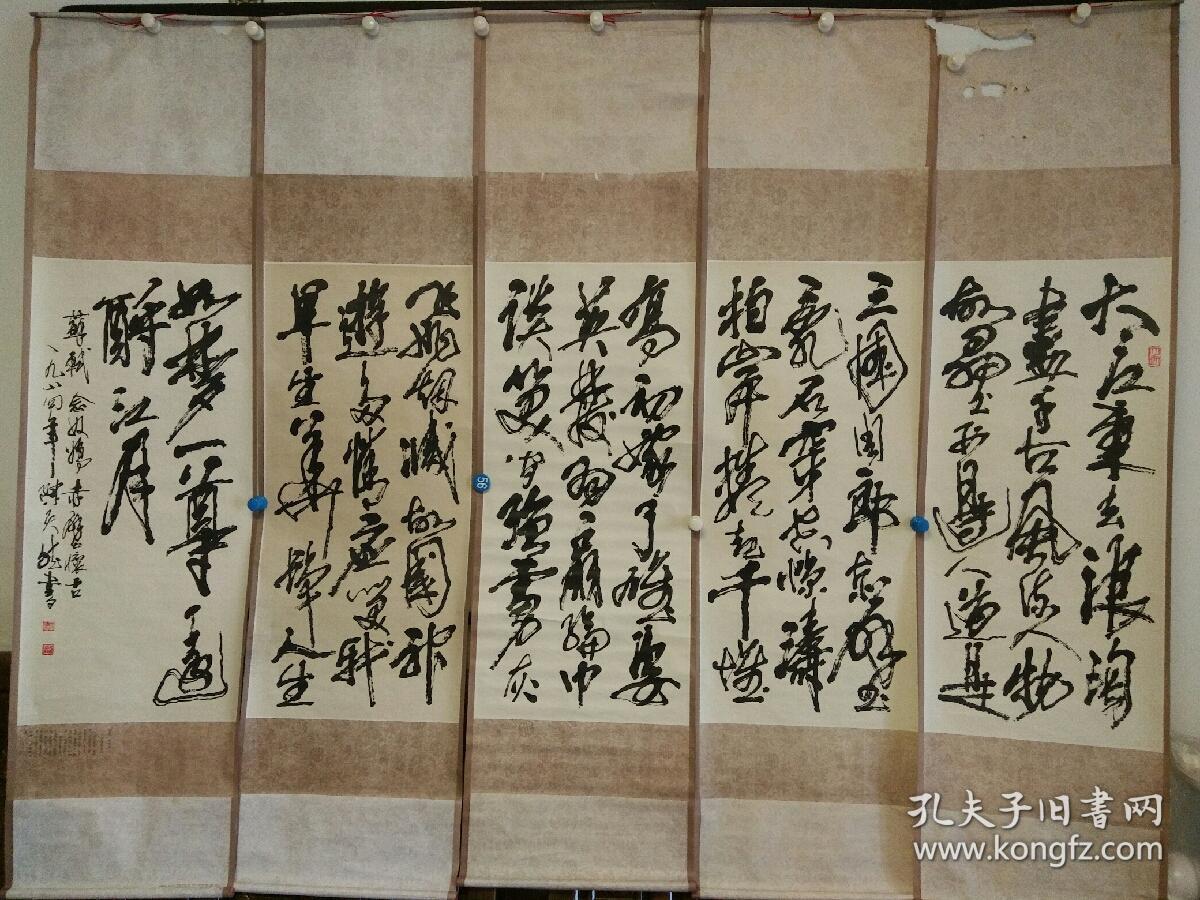 大江東去浪淘
盡千古風流人物
故壘西邊人道是
三國周郎赤壁
亂石穿空驚濤
拍岸捲起千堆
喬初嫁了雄姿
英發羽扇綸巾
談笑間強虜灰
故國神
遊多情應笑我
早生華髮人生
如夢一尊還
酹江月
蘇軾念奴嬌赤壁懷古
一九八四年陳天然書
56
孔夫子旧書网
www.kongfz.com